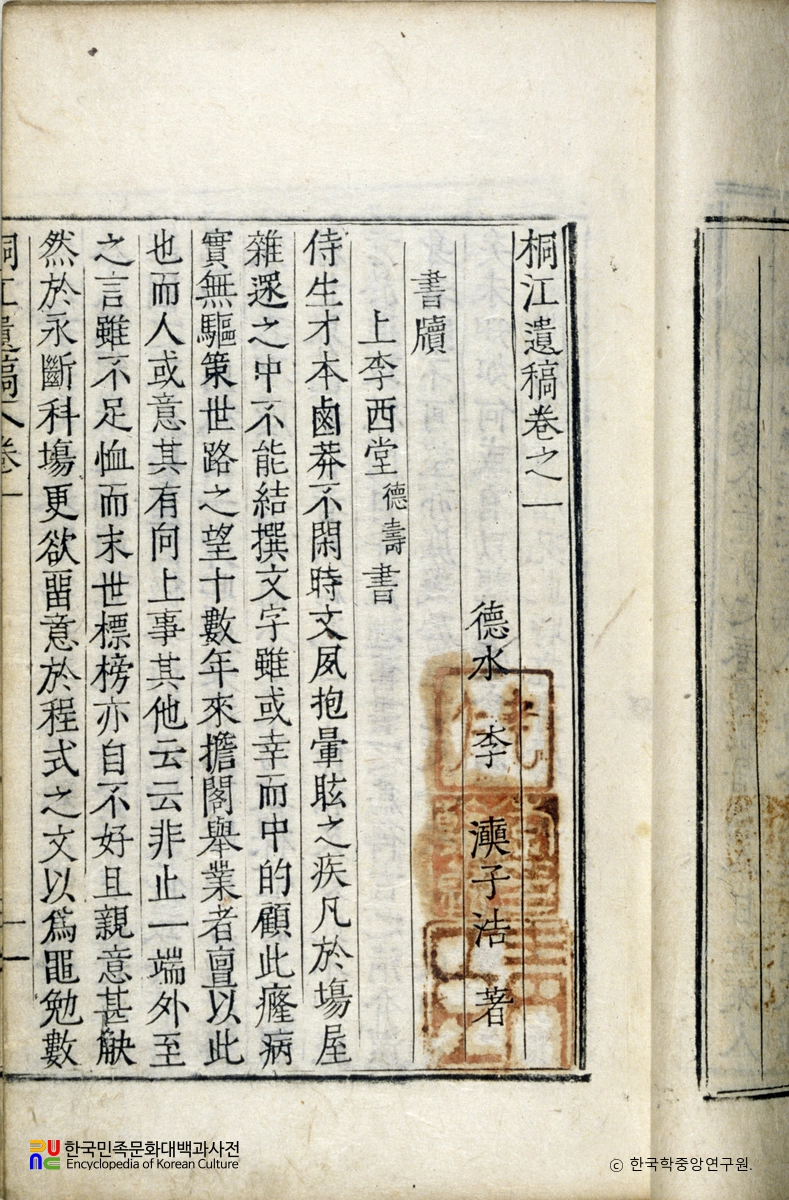 桐江遺稿卷之一
德水 李 㵢子浩 著
書牘
上李西堂德壽書
侍生才本鹵莽不閑時文夙抱暈眩之疾凡於場屋
雜遝之中不能結撰文字雖或幸而中的顧此癃病
實無驅策世路之望十數年來擔閣舉業者亶以此
也而人或意其有向上事其他云云非止一端外至
之言雖不足恤而末世標榜亦自不好且親意甚觖
然於永斷科場更欲留意於程式之文以爲黽勉數
桐江遺稿 卷一 一
한국민족문화대백과사전
Encyclopedia of Korean Culture
ⓒ 한국학중앙연구원.